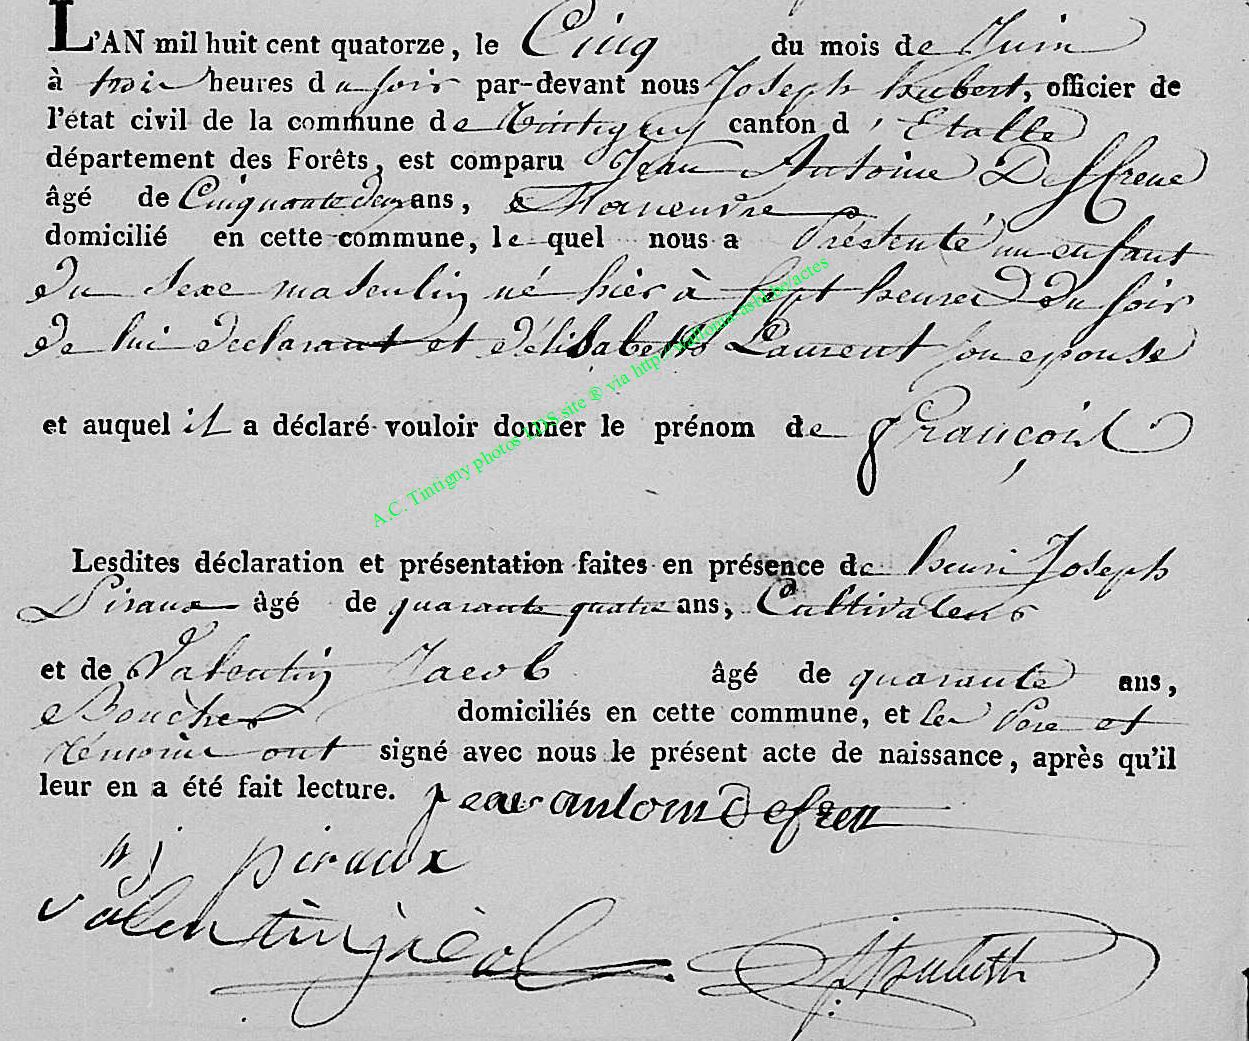 L'AN mil huit cent quatorze, le Cinq du mois de Juin
à trois heures du soir par-devant nous Joseph hubert, officier de
l'état civil de la commune de Tintigny canton d'Etalle
département des Forêts, est comparu Jean Antoine Deffrene
âgé de Cinquante deux ans, Manoeuvre
domicilié en cette commune, le quel nous a Présenté un enfant
du sexe masculin né hier à sept heures du soir
de lui declarant et d'élisabeth Laurent son epouse
et auquel il a déclaré vouloir donner le prénom de françois
A.C. Tintigny photos LDS site ® via
Lesdites déclaration et présentation faites en présence de henri Joseph
Piraux âgé de quarante quatre ans, Cultivateur
et de Valentin Jacob âgé de quarante ans,
Boucher domiciliés en cette commune, et les Pere et
témoins ont signé avec nous le présent acte de naissance, après qu'il
leur en a été fait lecture. jean antoin defren
hj piraux
valentin jacob